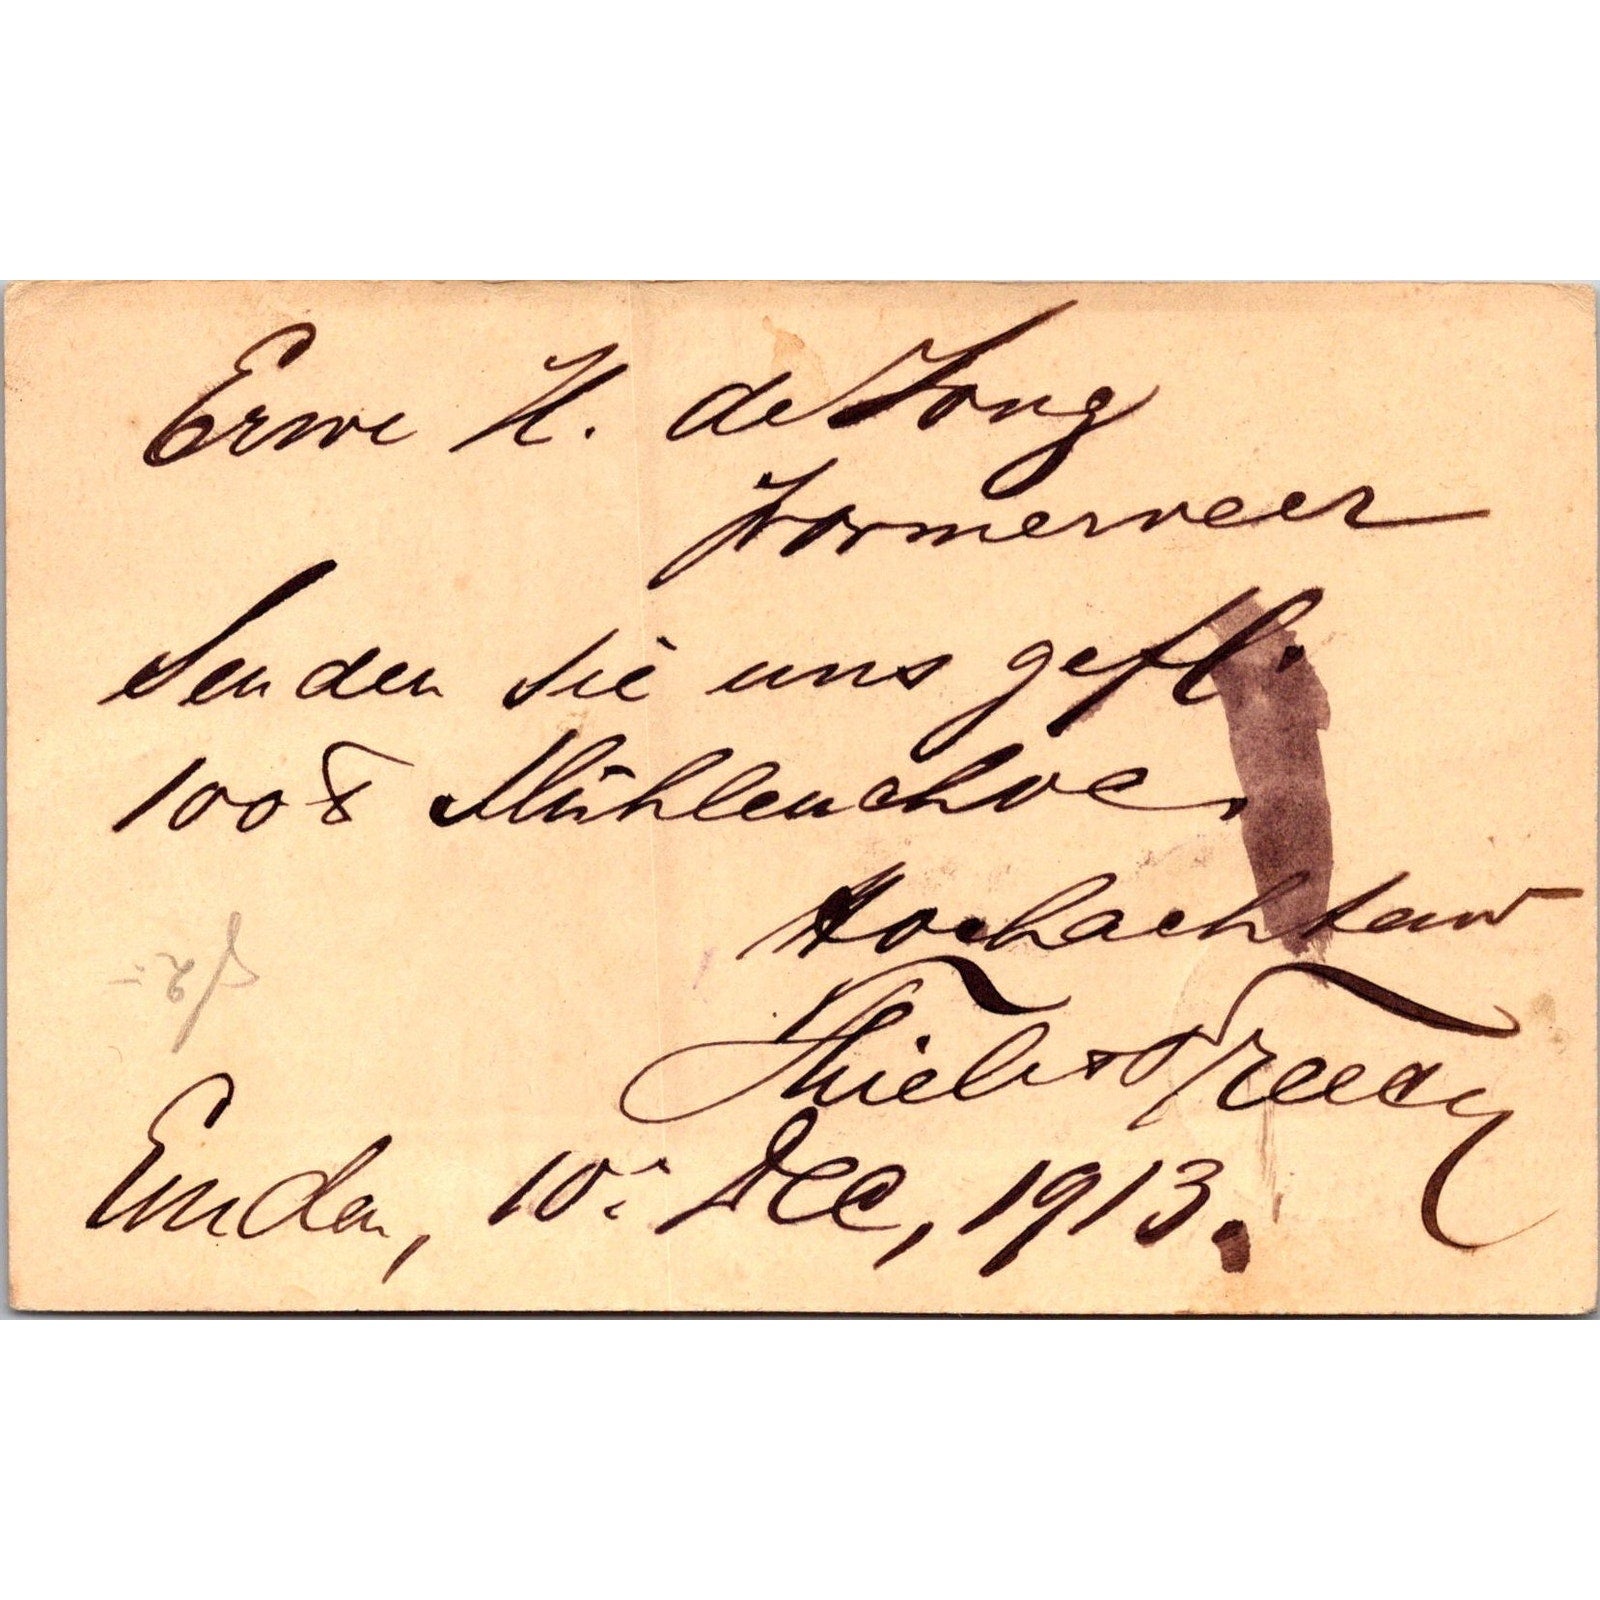 Erwe H. de Jong
Wormerveer
Senden Sie uns gefl.
100 ℔ Mühlenchoc.
Hochachtend
Thiele & Freery
Emden, 10. Dec, 1913.